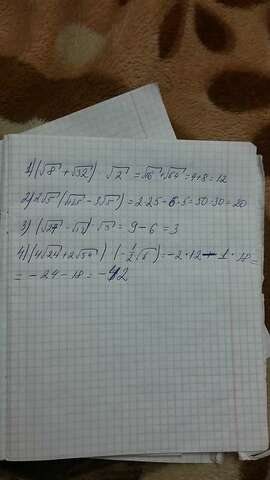 1) (√8 + √32) √2 = √16 + √64 = 4+8=12
2) 2√5 (√125 - 3√5) = 2·25 - 6·5 = 50·30 = 20
3) (√27 - √12) √3 = 9 - 6 = 3
4) (4√24 + 2√54) (-1/2 √6) = -2·12 - 1·18 =
= -24 - 18 = -42